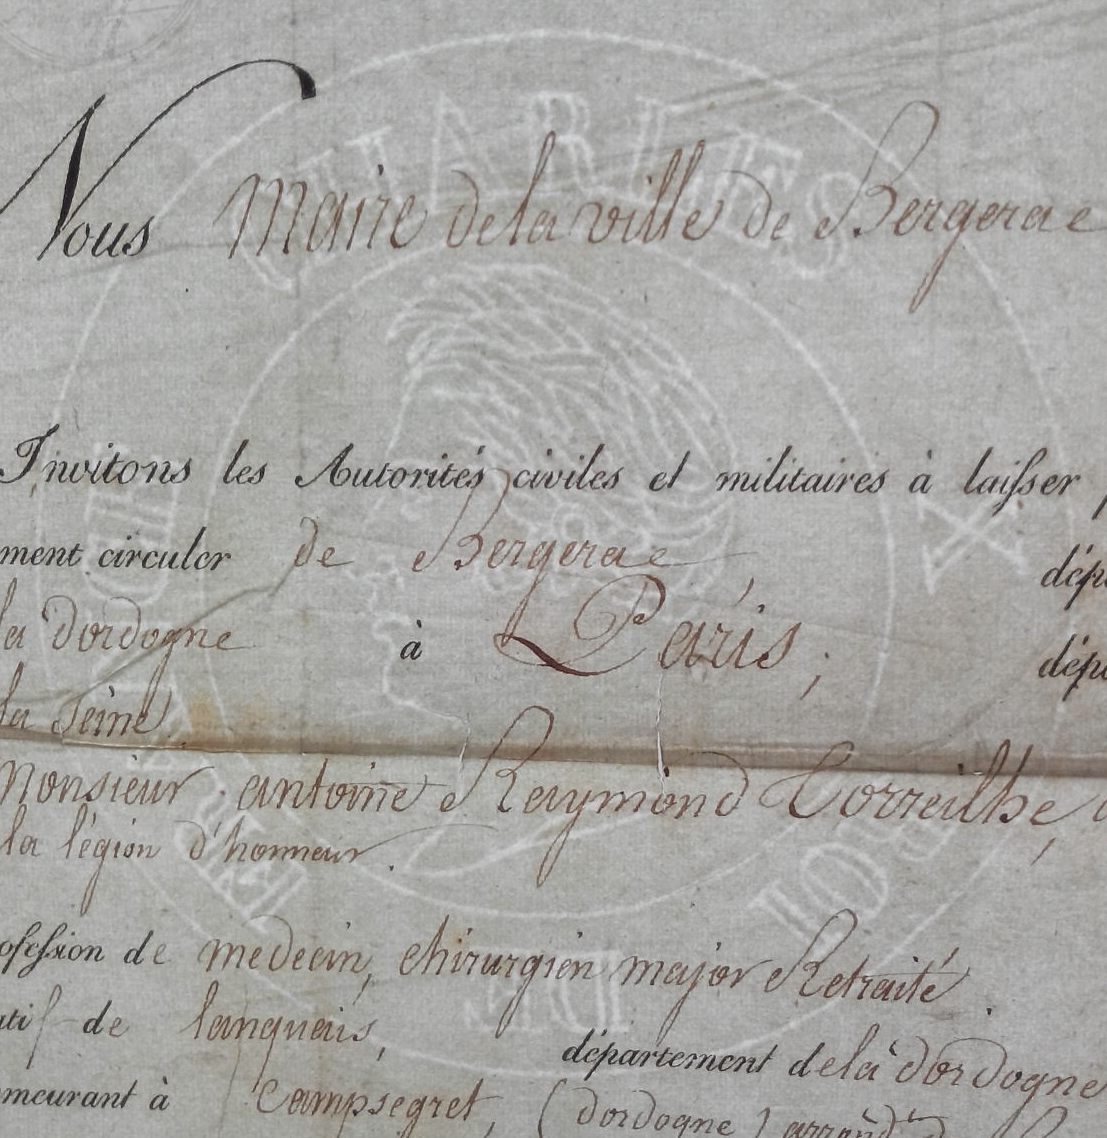 CHARLES X ROI DE FRANCE
Nous Maire de la ville de Bergerac
Invitons les Autorités civiles et militaires à laisser
ment circuler de Bergerac, dépa
la Dordogne à Paris; dépa
la Seine.
Monsieur antoine Raymond Correilhe,
la légion d'honneur.
ofession de medecin, chirurgien major Retraité.
atif de lanquais, département de la Dordogne
meurant à Campsegret, (dordogne) arrondt